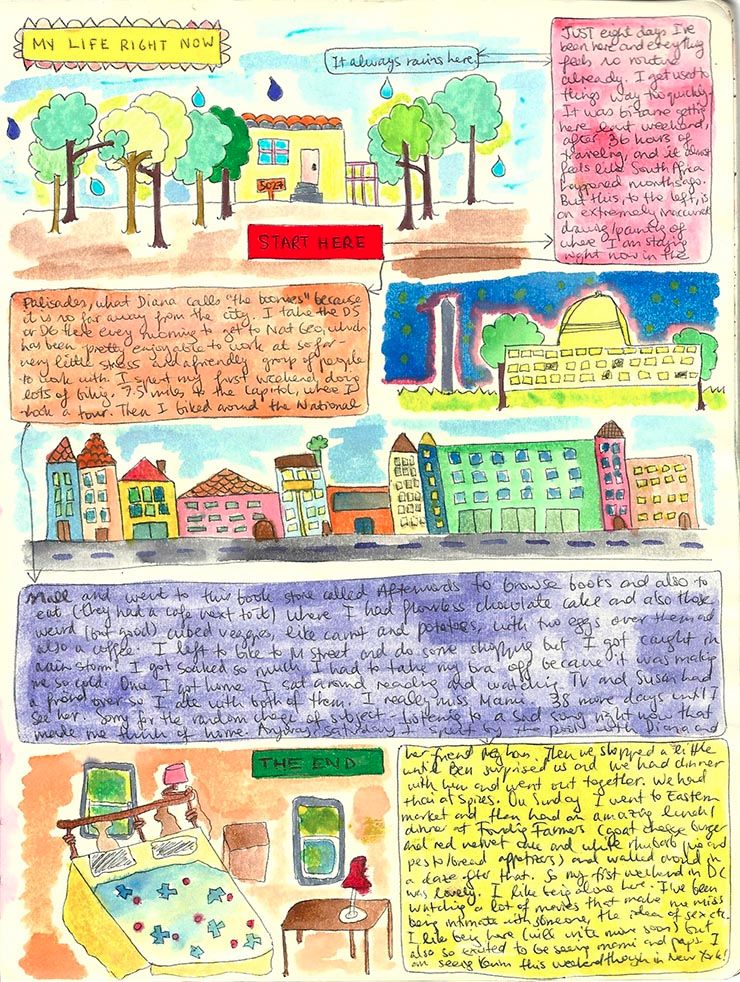 MY LIFE RIGHT NOW
It always rains here.
JUST eight days I've
been here and everything
feels so routine
already. I get used to
things way too quickly.
It was bizarre getting
here last weekend,
after 36 hours of
traveling, and it almost
feels like South Africa
happened months ago.
But this, to the left, is
an extremely inaccurate
drawing/painting of
where I am staying
right now in the
5027
START HERE
Palisades, what Diana calls "the boonies" because
it is so far away from the city. I take the D5
or D6 there every morning to get to Nat Geo, which
has been pretty enjoyable to work at so far -
very little stress and a friendly group of people
to work with. I spent my first weekend doing
lots of biking. 7.5 miles to the Capitol, where I
took a tour. Then I biked around the National
Mall and went to this book store called Afterwords to browse books and also to
eat (they had a cafe next to it) where I had flawless chocolate cake and also these
weird (but good) cubed veggies, like carrot and potatoes, with two eggs over them and
also a coffee. I left to bike to M Street and do some shopping but I got caught in
rain storm! I got soaked so much I had to take my bra off because it was making
me so cold. Once I got home I sat around reading and watching TV and Susan had
a friend over so I ate with both of them. I really miss Mami. 38 more days until I
see her. Sorry for the random change of subject - listening to a sad song right now that
made me think of home. Anyway, Saturday I spent by the pool with Diana and
her friend Meghan. Then we shopped a little
until Ben surprised us and we had dinner
with him and went out together. We had
thai at Spices. On Sunday I went to Eastern
market and then had an amazing lunch/
dinner at Founding Farmers (goat cheese burger
and red velvet cake and white rhubarb and
pesto/bread appetizers) and walked around in
a daze after that. So my first weekend in DC
was lovely. I like being alone here. I've been
watching a lot of movies that make me miss
being intimate with someone, the idea of sex etc.
I like being here (will write more soon) but
also so excited to be seeing mami and papi. I
am seeing this weekend though in New York!
THE END